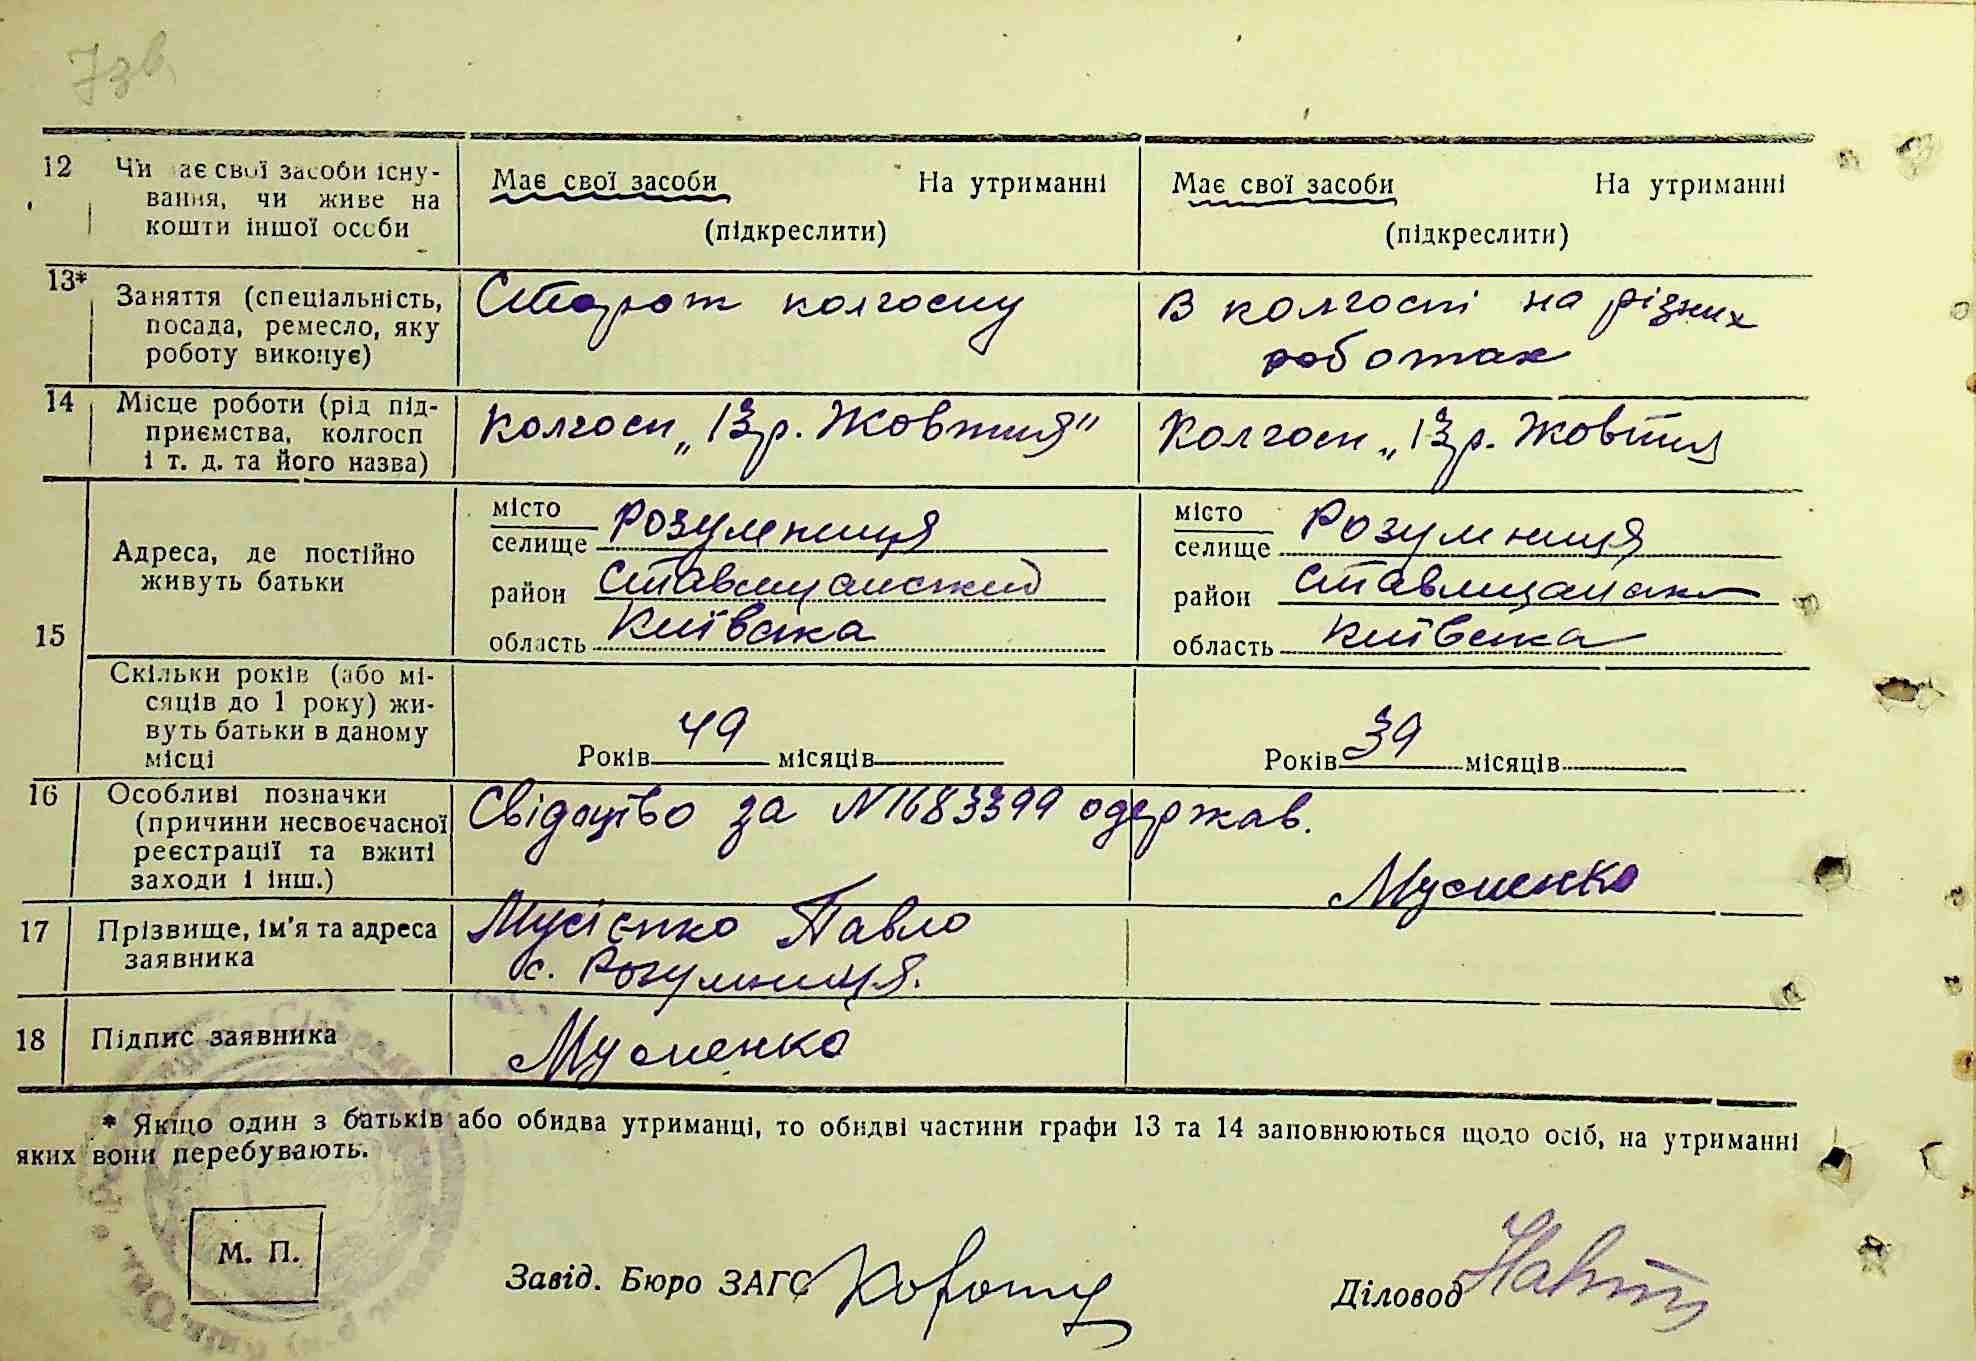 7зв
12 Чи має свої засоби існу-
вання, чи живе на
кошти іншої особи
Має свої засоби На утриманні
(підкреслити)
Має свої засоби На утриманні
(підкреслити)
13* Заняття (спеціальність,
посада, ремесло, яку
роботу виконує)
Сторож колгоспу
В колгоспі на різних
роботах
14 Місце роботи (рід під-
приємства, колгосп
і т. д. та його назва)
Колгосп „13 р. Жовтня"
Колгосп „13 р. Жовтня
15 Адреса, де постійно
живуть батьки
місто
селище Розумниця
район Ставищанський
область Київська
місто
селище Розумниця
район Ставищанськ
область Київська
Скільки років (або мі-
сяців до 1 року) жи-
вуть батьки в даному
місці
Років 49 місяців
Років 39 місяців
16 Особливі позначки
(причини несвоєчасної
реєстрації та вжиті
заходи і інш.)
Свідоцтво за №1683399 одержав.
Мусиенко
17 Прізвище, ім'я та адреса
заявника
Мусієнко Павло
с. Розумниця.
18 Підпис заявника
Мусиенко
* Якщо один з батьків або обидва утриманці, то обидві частини графи 13 та 14 заповнюються щодо осіб, на утриманні
яких вони перебувають.
М. П.
Завід. Бюро ЗАГС
Діловод